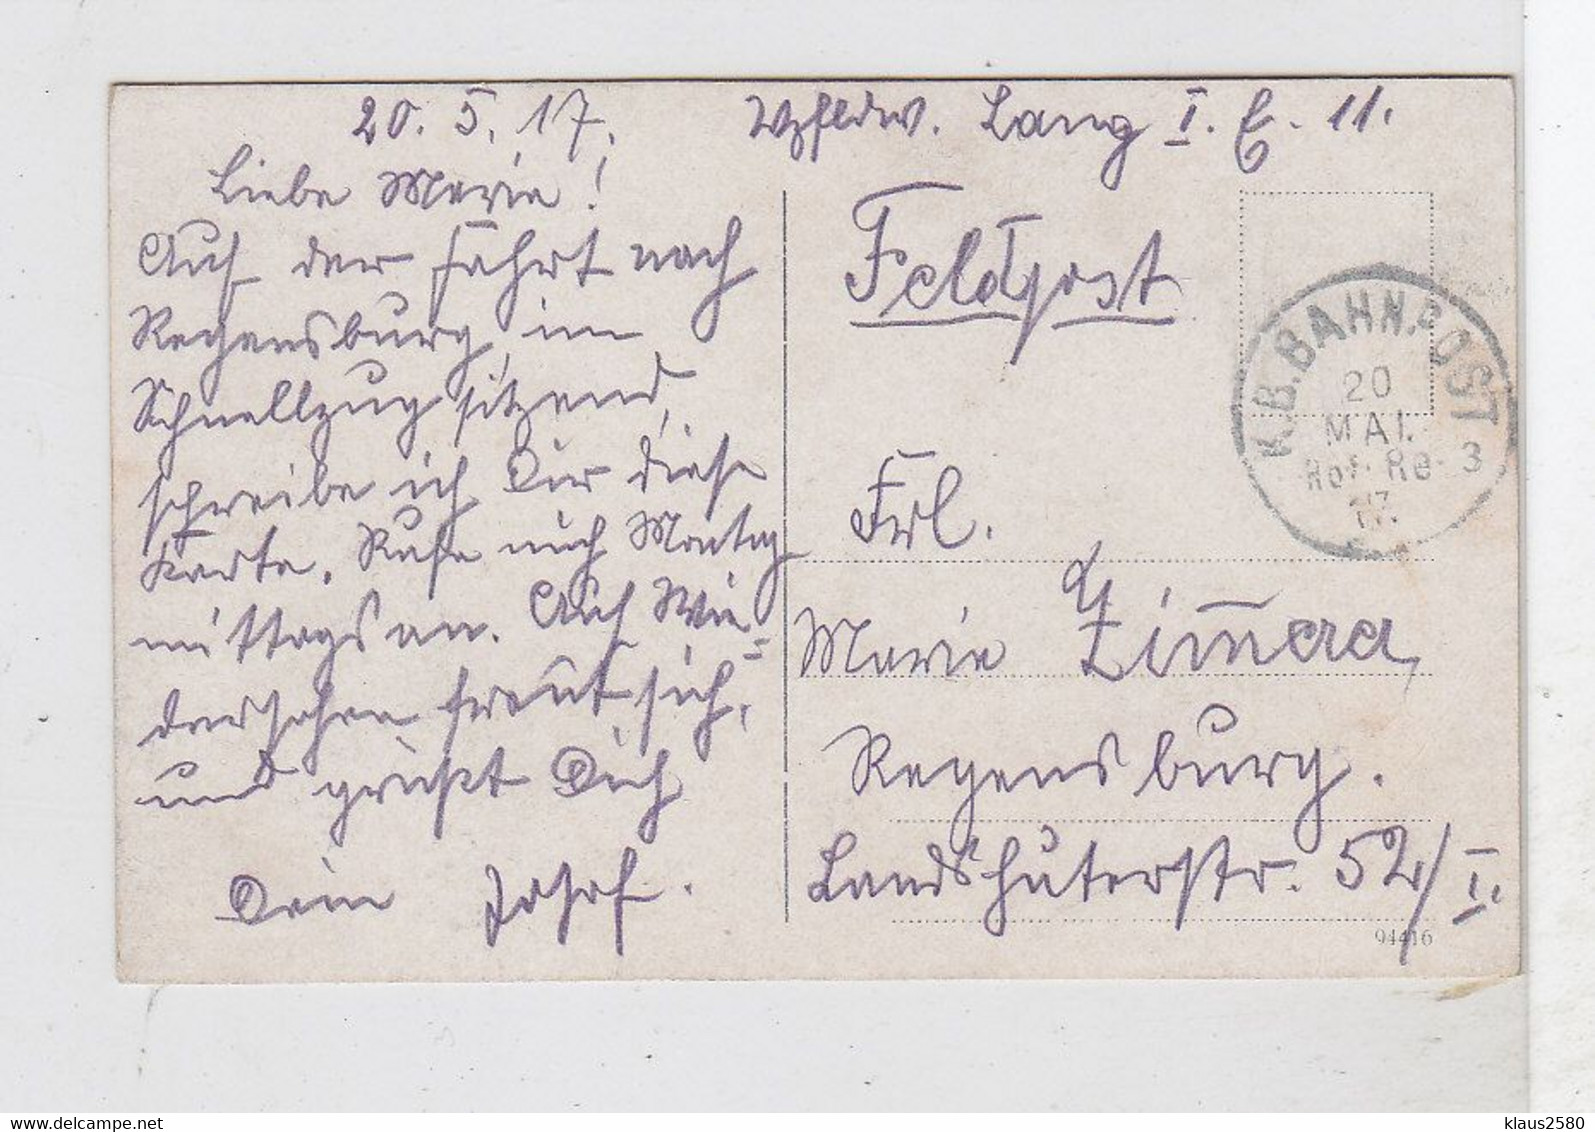 20. 5. 17.
Liebe Marie!
Auf der Fahrt nach
Regensburg, im
Schnellzug sitzend,
schreibe ich Dir diese
Karte. Rufe mich Montag
mittags an. Auf Wie=
dersehen freut sich,
und grüßt Dich
Dein Josef.
Vzfldw. Lang I. E. 11.
Feldpost
K.B.BAHNPOST
20
MAI.
Hof-Re- 3
17.
Frl.
Marie Zim̄erer,
Regensburg.
Landshuterstr. 52/I.
94416
www.delcampe.net
klaus2580